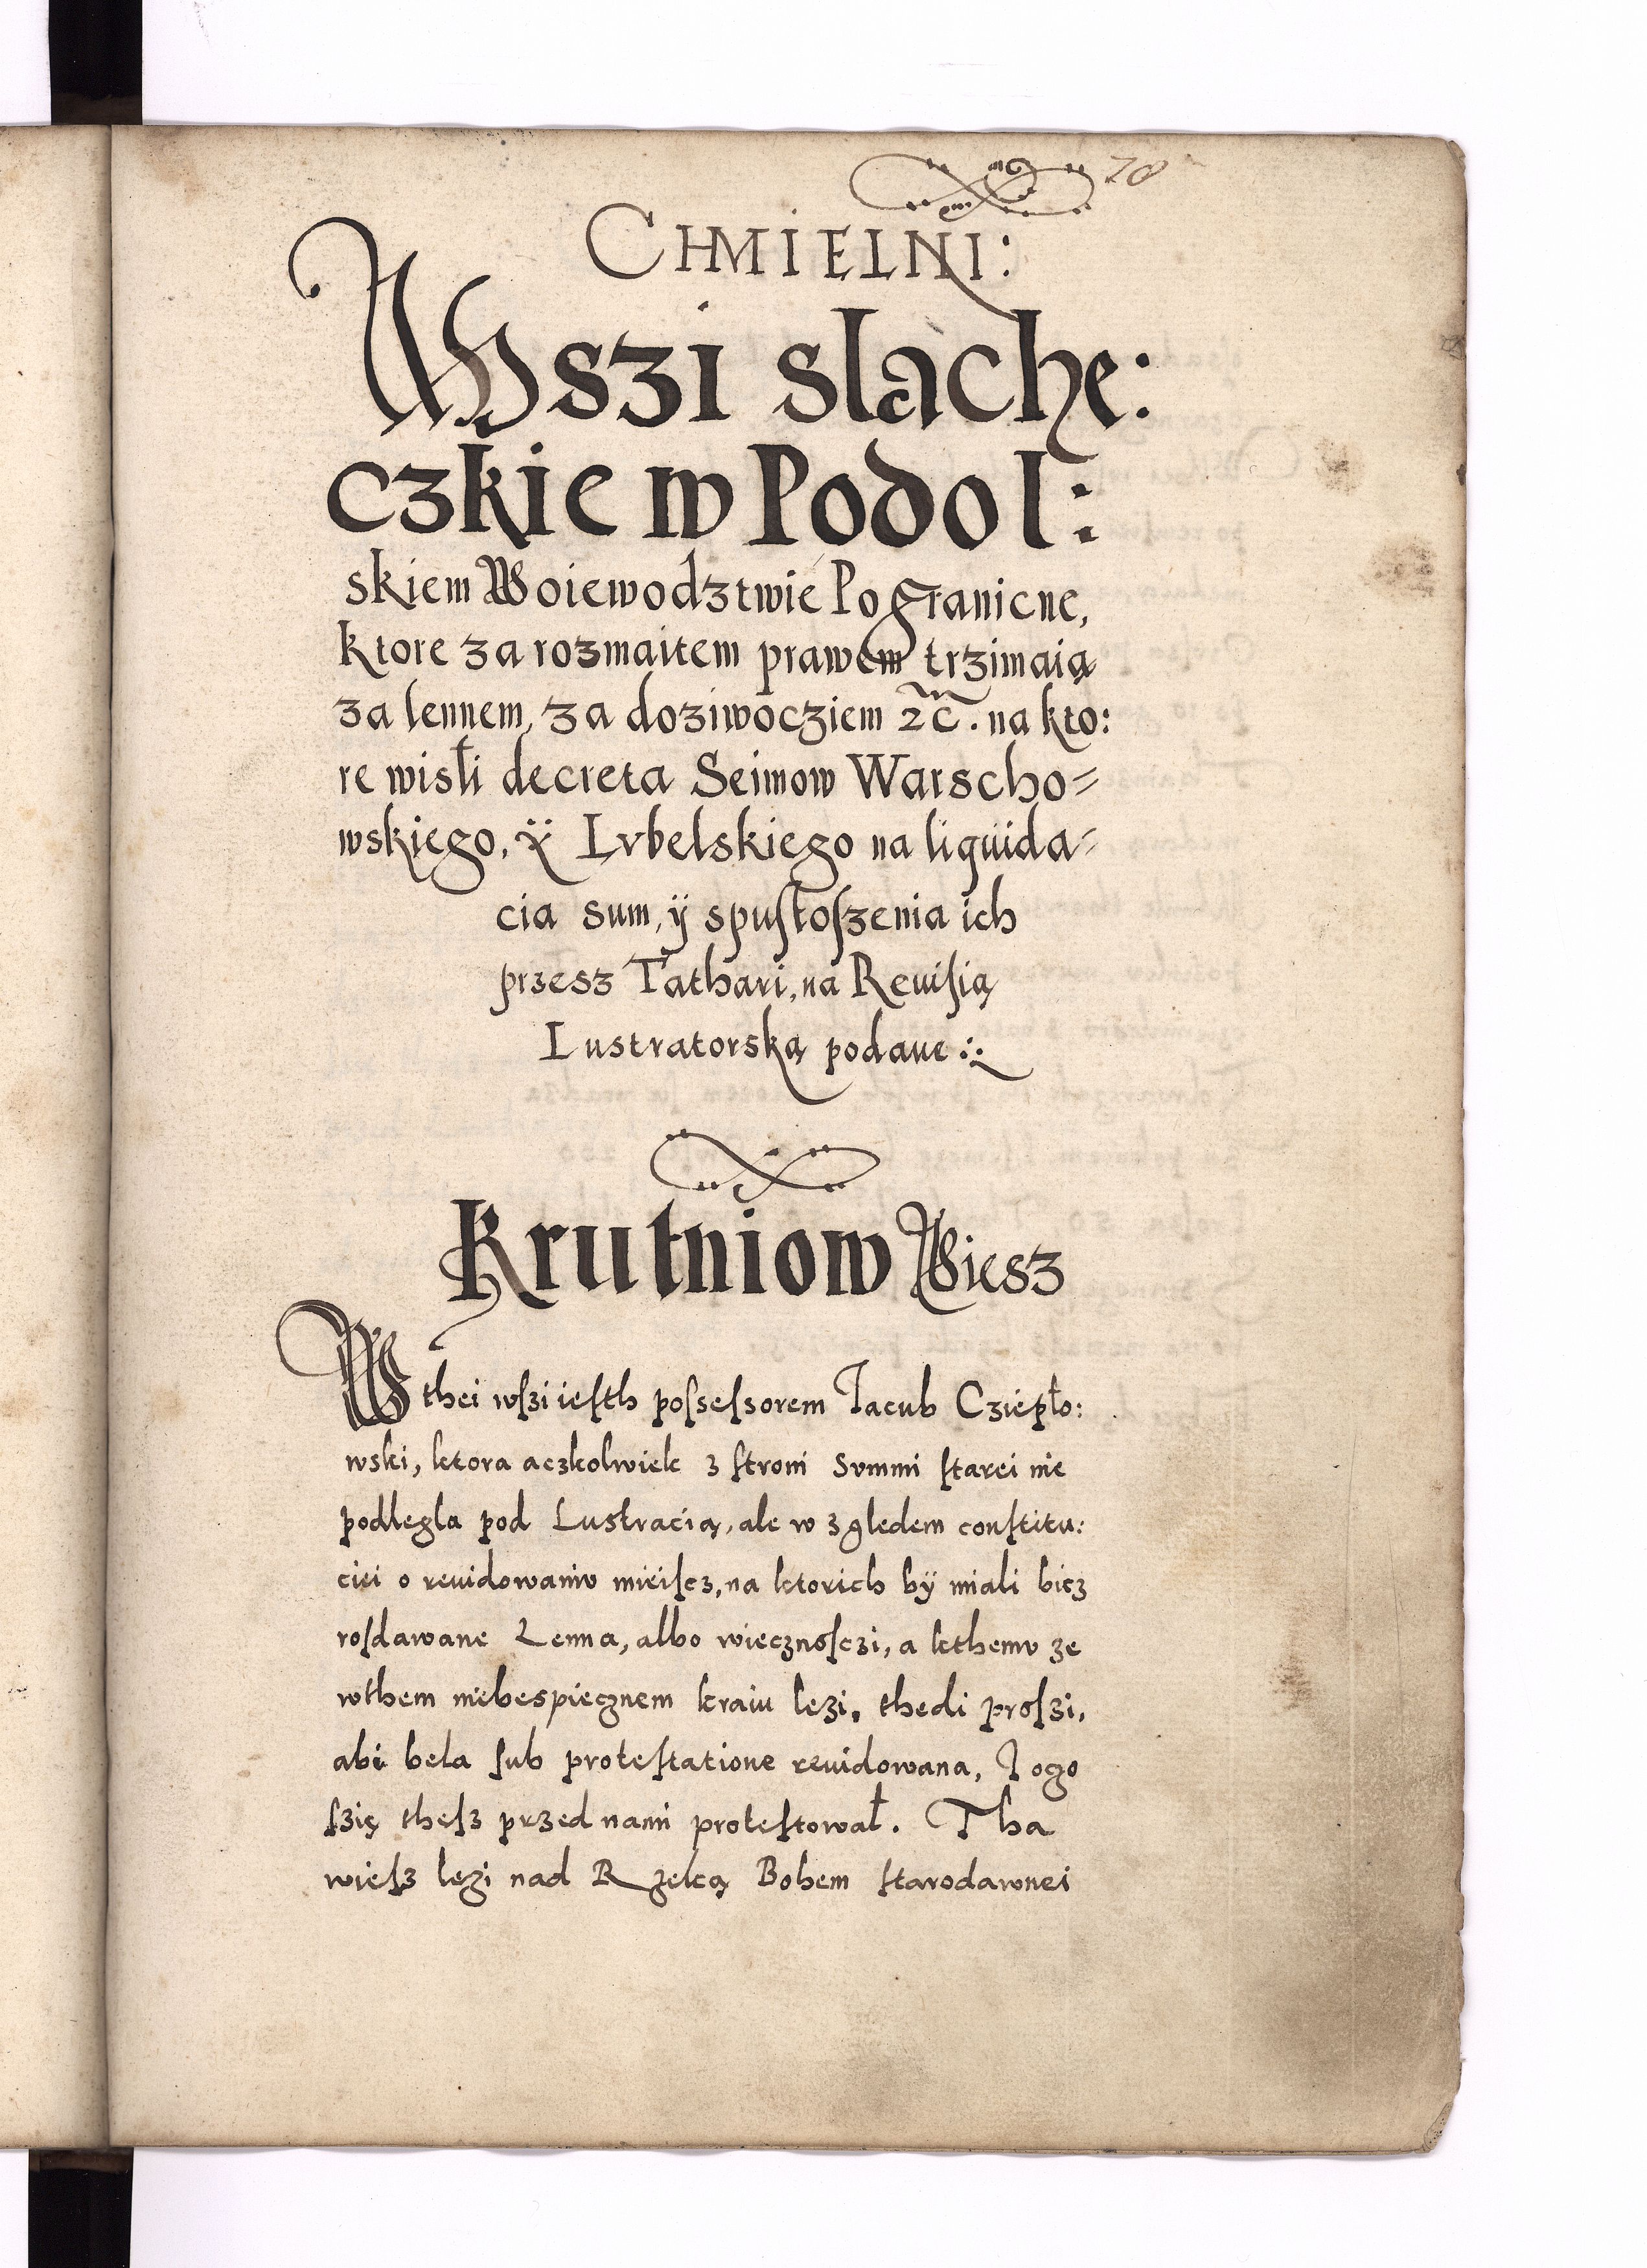 78
CHMIELNI:
Wszi slache:
czkie w Podol:
skiem Woiewodztwie Pogranicne,
ktore za rozmaitem prawem trzimaią
za lennem, za doziwocziem &c. na kto:
re wisłi decreta Seimow Warscho=
wskiego, ÿ Lvbelskiego na liquida=
cia sum, ÿ spuſtoſzenia ich
przesz Tathari, na Reuiſią
Lustratorską podane :.
Krutniow Wiesz
W thei wſzi ieſth poſseſsorem Jacub Cziepło:
wski, ktora aczkolwiek z ſtroni Svmmi ſtarei nie
podlegla pod Luſtracią, ale w zgledem conſtitu:
ciei o reuidowaniv mieiſcz, na ktorich bÿ miali bicz
roſdawane Lenna, albo wiecznoſczi, a kthemv ze
wthem niebespiecznem kraiu lezi, thedi proſzi,
abi bela ſub proteſtatione reuidowana, I oczo
ſzię theſz przed nami proteſtował. Tha
wieſz lezi nad Rzeką Bohem ſtarodawnei